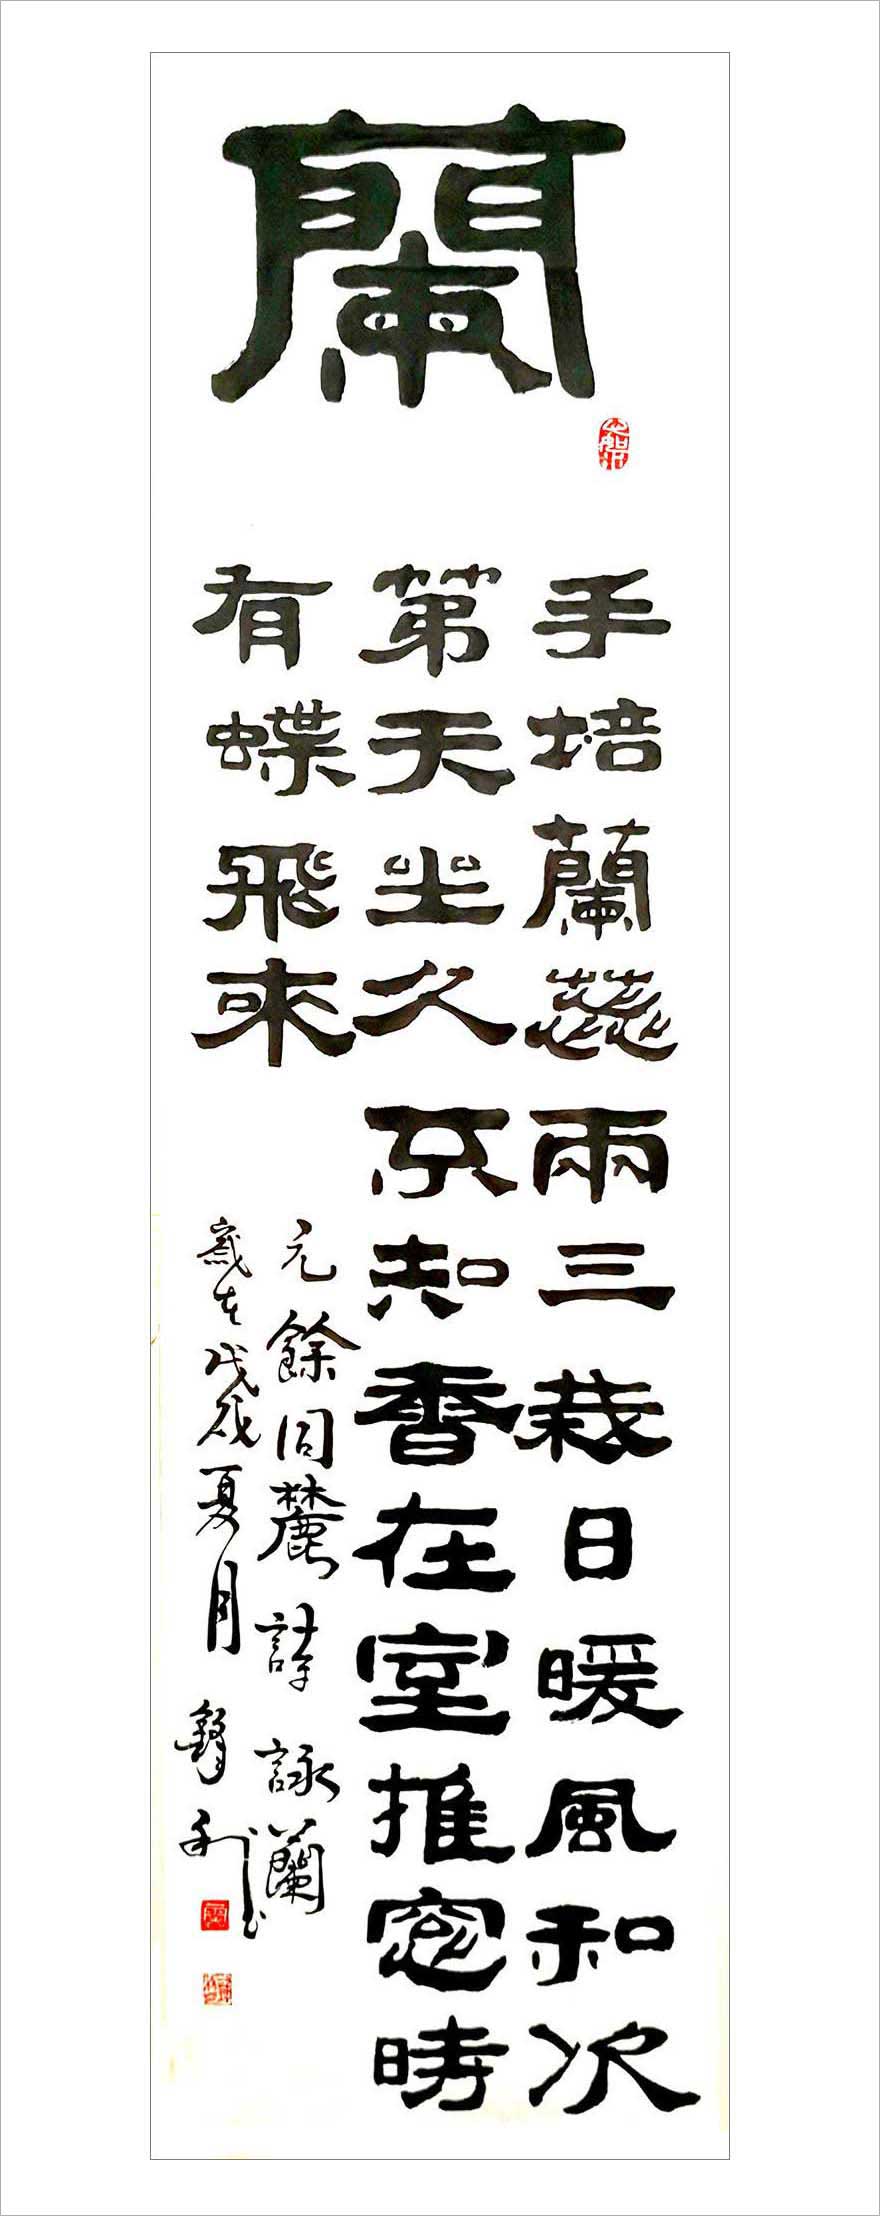 蘭
手培蘭蕊兩三栽日暖風和次
第天坐久不知香在室推窓時
有蝶飛來
元餘同麓詩詠蘭
歲在戊戌夏月鋒利书